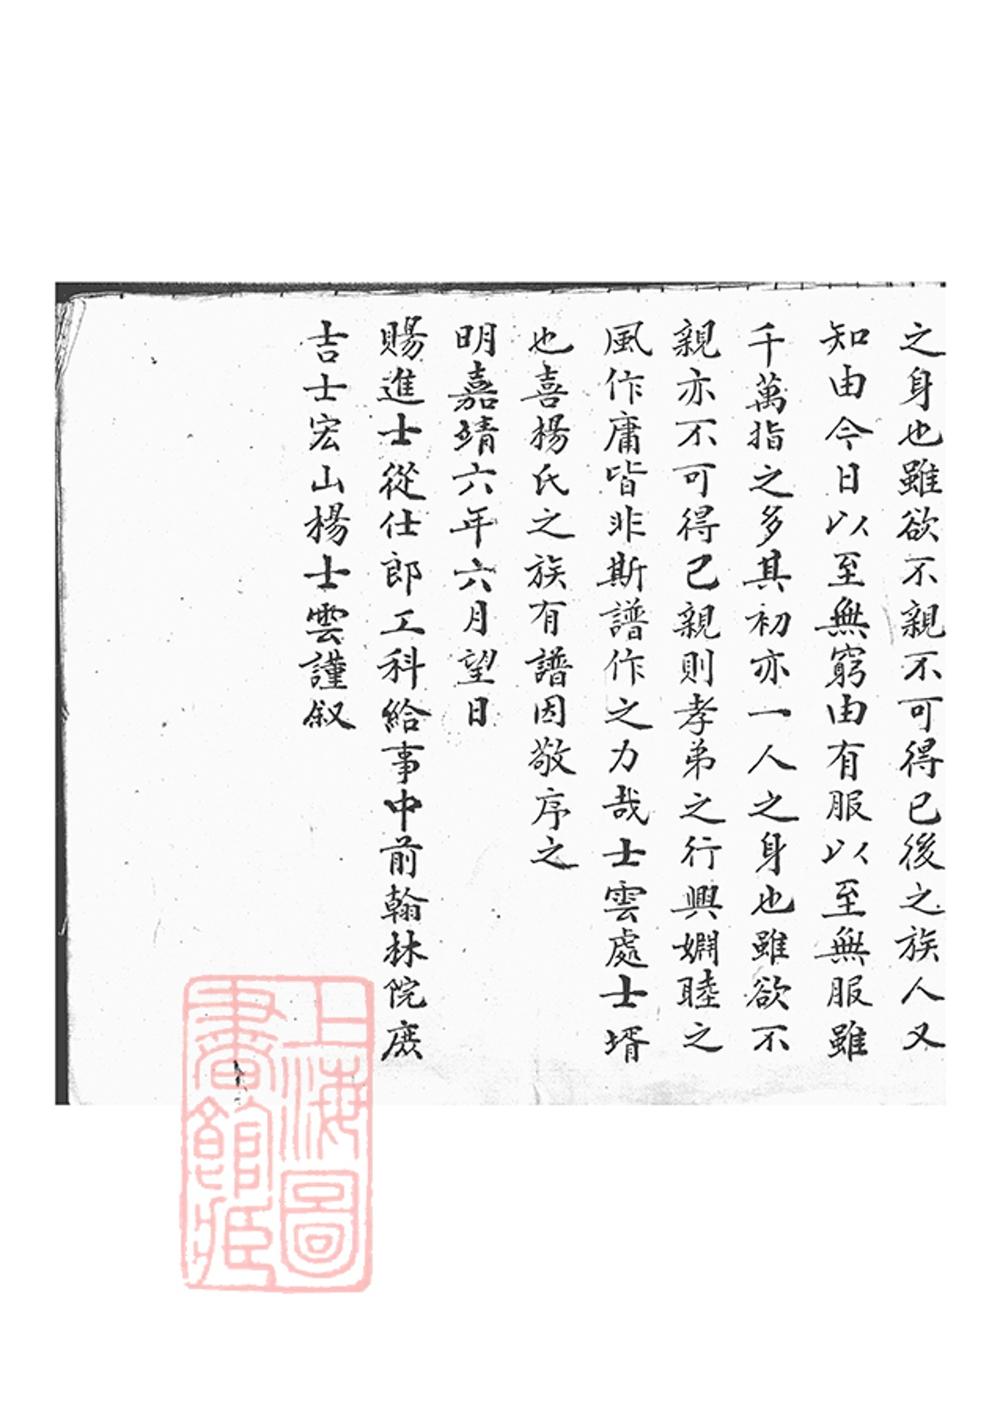 之身也雖欲不親不可得已後之族人又
知由今日以至無窮由有服以至無服雖
千萬指之多其初亦一人之身也雖欲不
親亦不可得已親則孝弟之行興婣睦之
風作庸皆非斯譜作之力哉士雲處士壻
也喜楊氏之族有譜因敬序之
明嘉靖六年六月望日
賜進士從仕郎工科給事中前翰林院庶
吉士宏山楊士雲謹叙
上海圖
書館藏